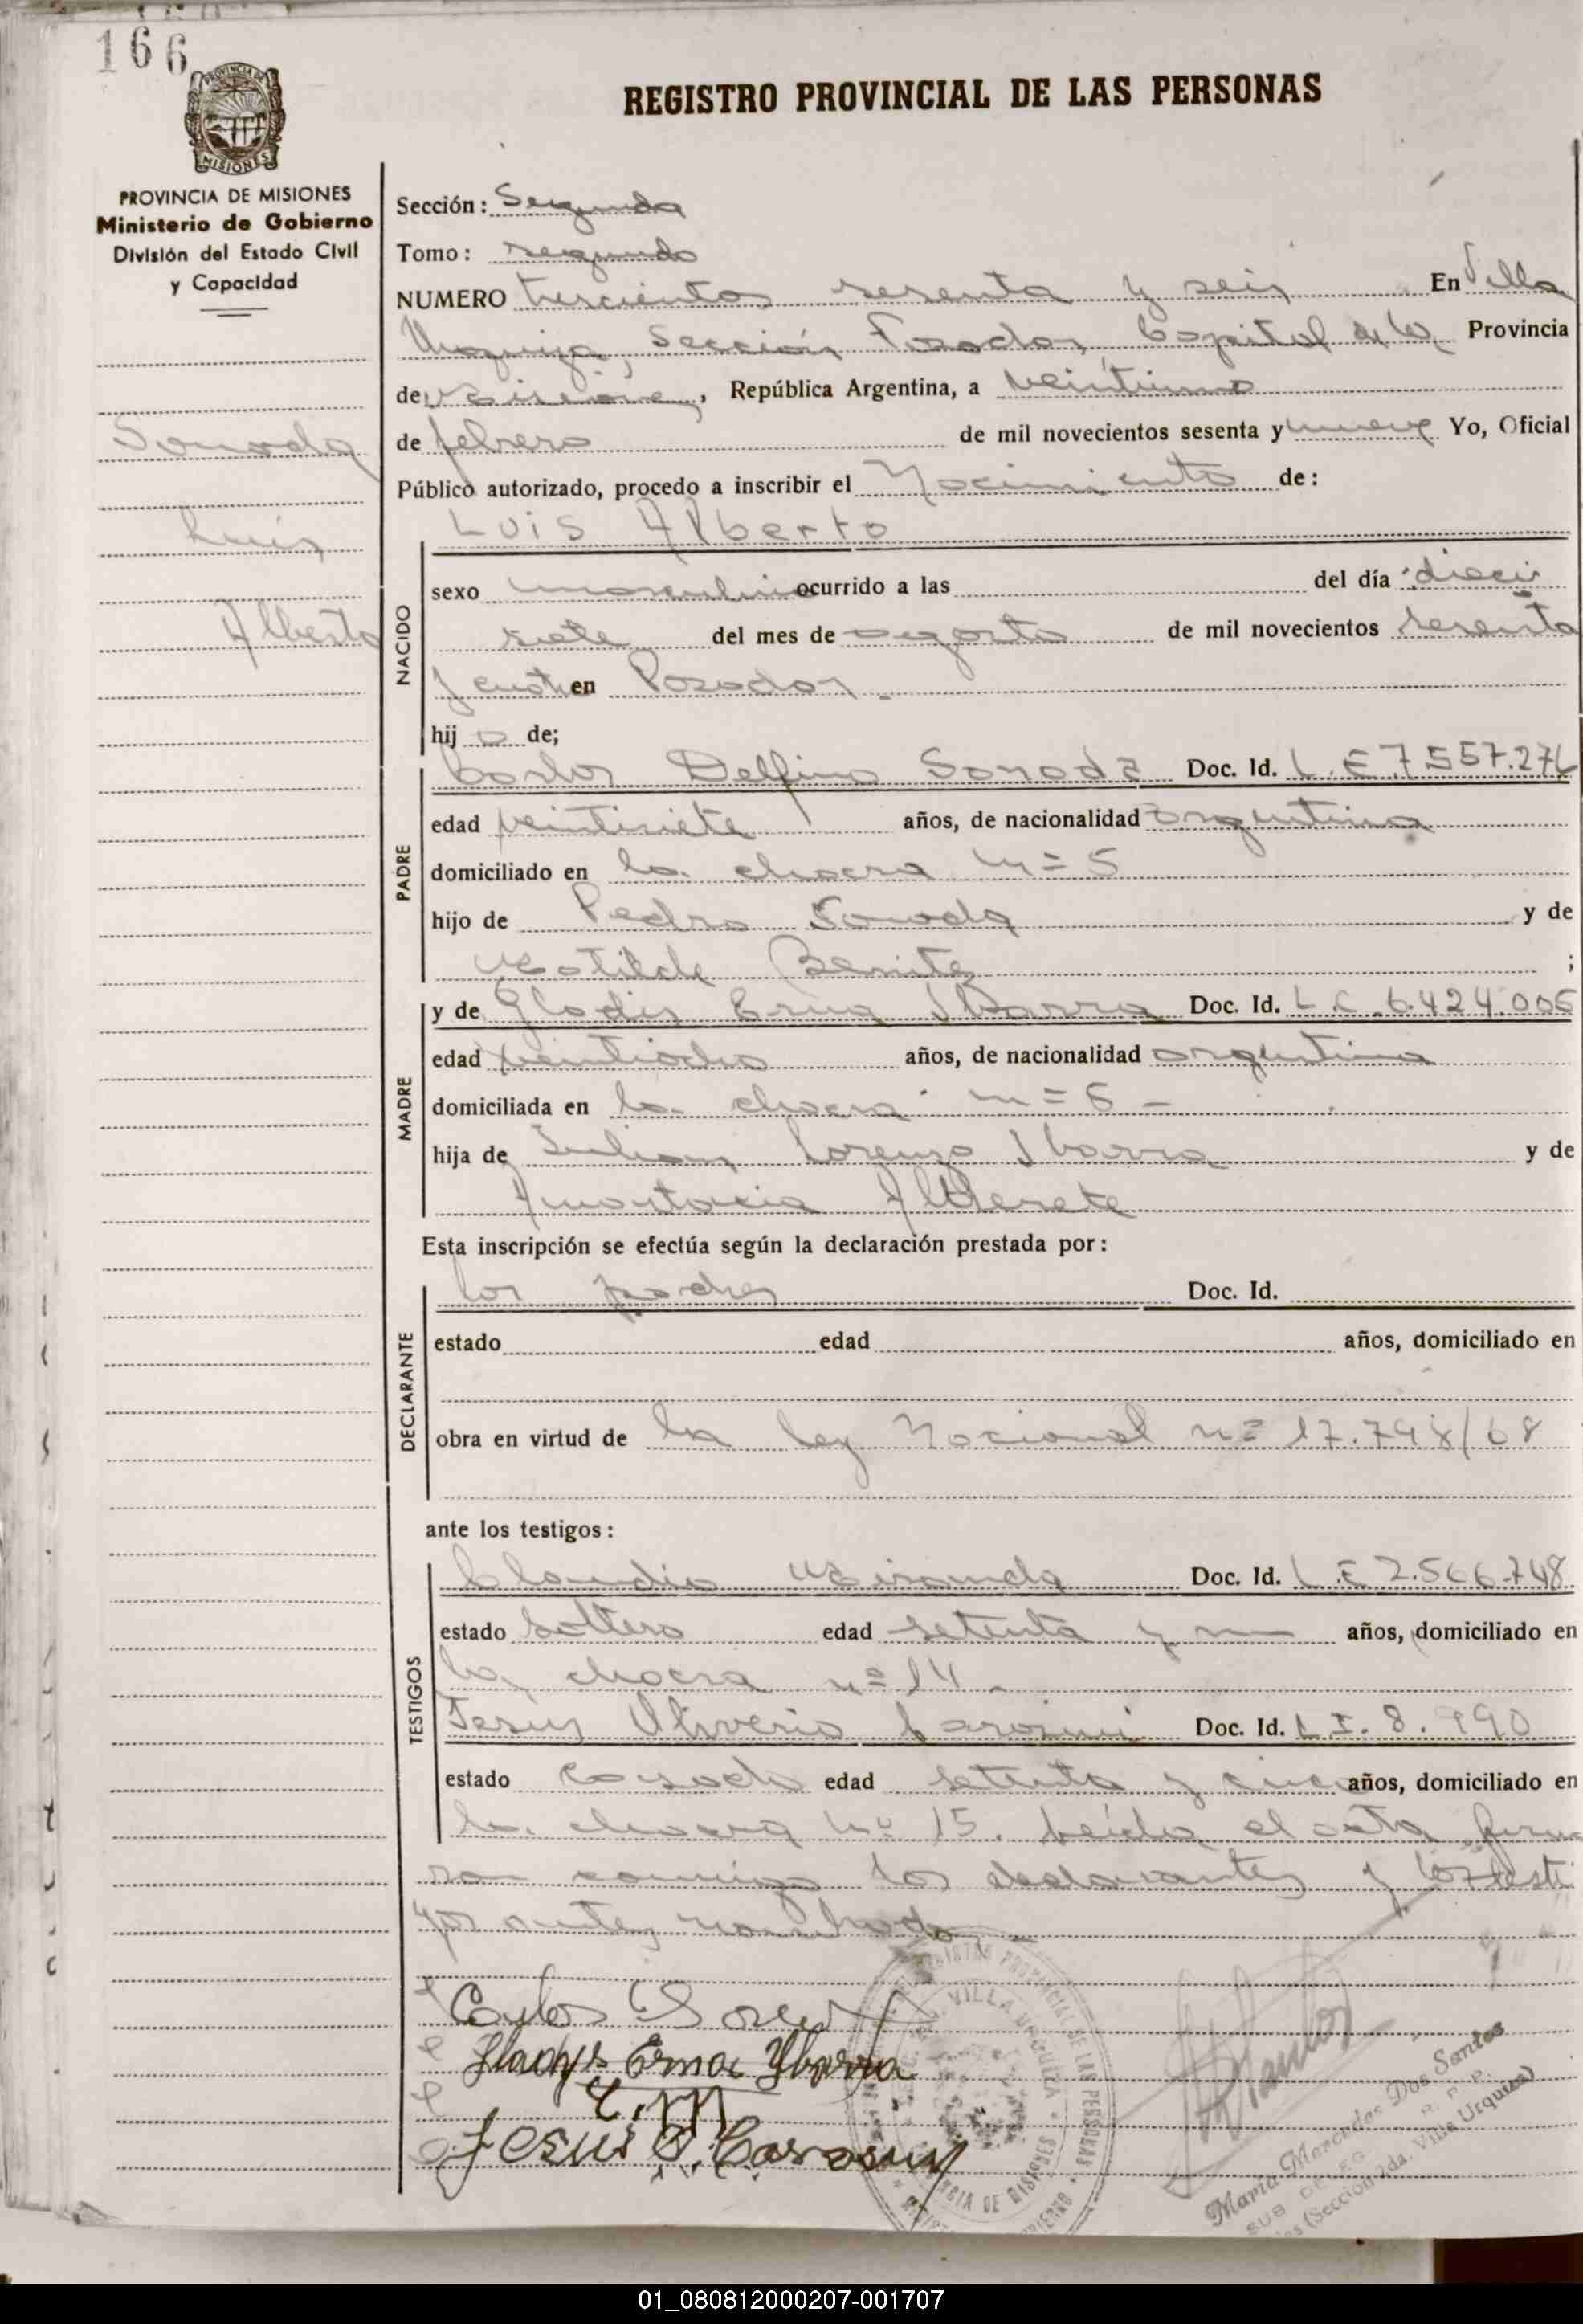 166
PROVINCIA DE
MISIONES
REGISTRO PROVINCIAL DE LAS PERSONAS
PROVINCIA DE MISIONES
Ministerio de Gobierno
División del Estado Civil
y Capacidad
Sonoda
Luis
Alberto
Sección: Segunda
Tomo: segundo
NUMERO trescientos sesenta y seis En Villa
Urquiza, Sección Posadas, Capital de la Provincia
de Misiones, República Argentina, a veintiuno
de febrero de mil novecientos sesenta y nueve Yo, Oficial
Público autorizado, procedo a inscribir el Nacimiento de:
Luis Alberto
NACIDO
sexo masculino ocurrido a las del día dieci
siete del mes de agosto de mil novecientos sesenta
y en Posadas.
hij o de;
PADRE
Carlos Delfino Sonoda Doc. Id. L.E 7.557.276
edad veintisiete años, de nacionalidad argentina
domiciliado en la chacra n= 5
hijo de Pedro Sonoda y de
Matilde Benitez ;
MADRE
y de Gladis Erma Ibarra Doc. Id. L.C. 6.424.005
edad veintiocho años, de nacionalidad argentina
domiciliada en la chacra n= 5 -
hija de Julian Lorenzo Ibarra y de
Anastacia Alderete
Esta inscripción se efectúa según la declaración prestada por:
DECLARANTE
los padres Doc. Id.
estado edad años, domiciliado en
obra en virtud de la ley Nacional n= 17.798/68
ante los testigos:
TESTIGOS
Claudio Miranda Doc. Id. L.E 2.566.748
estado soltero edad setenta y un años, domiciliado en
la chacra nº 14.
Jesus Oliverio Doc. Id. L.I. 8.990
estado casado edad setenta y años, domiciliado en
la chacra nº 15. Leída el acta firma
ran conmigo los declarantes y los testi
gos antes nombrados.
Carlos
Gladys Erma Ybarra
C. M
Jesus O.
REGISTRO PROVINCIAL DE LAS PERSONAS
VILLA URQUIZA
PROVINCIA DE MISIONES
María Mercedes Dos Santos
SUB DELEG. R. P. P.
(Sección 2da. Villa Urquiza)
01_080812000207-001707